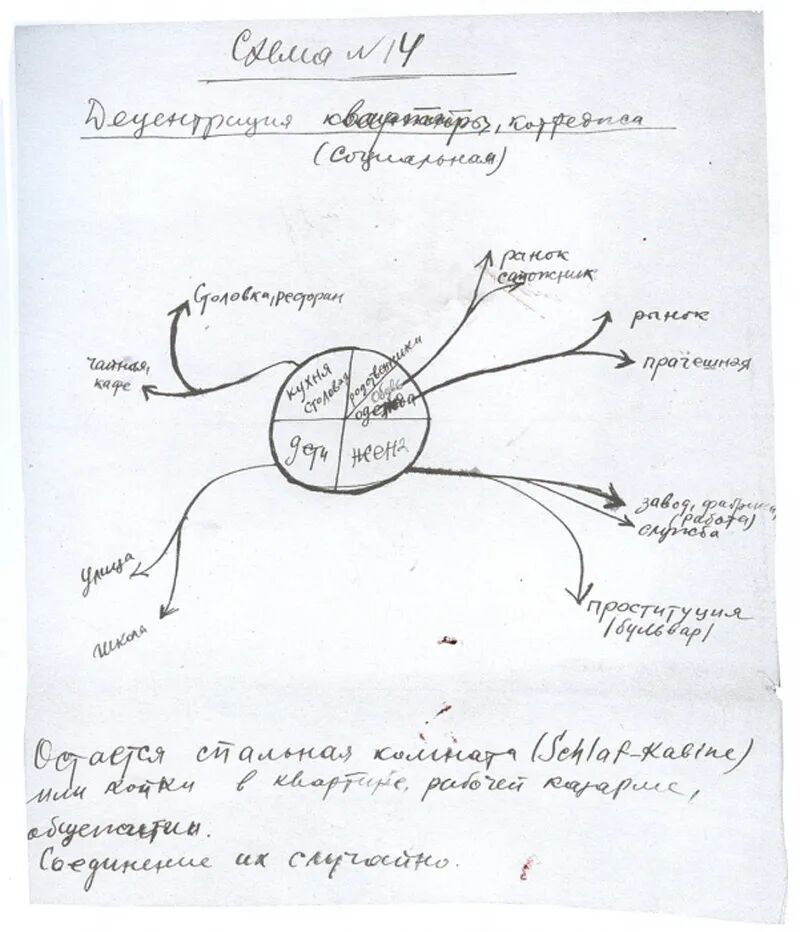 Схема N 14
Децентрация квартиры, коттеджа
(социальная)
ранок
сапожник
Столовка, ресторан
рынок
чайная,
кафе
прачешная
кухня
столовая
родственники
обувь
одежда
дети
жена
завод, фабрика,
(работа)
служба
улица
школа
проституция
/бульвар/
Остается спальная комната (Schlaf-Kabine)
или койки в квартире, рабочей казарме,
общежитии.
Соединение их случайно.